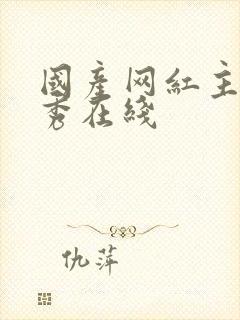 國產网紅主
秀在綫
仇萍